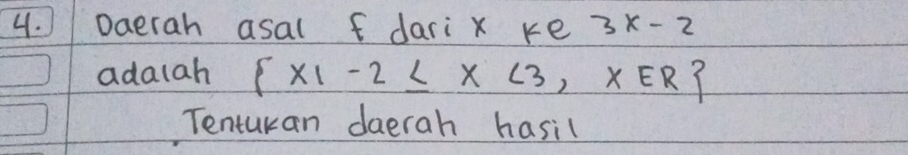 4. Daerah asal f dari x ke 3x - 2
adalah { x | -2 ≤ x < 3, x ∈ R }
Tentukan daerah hasil